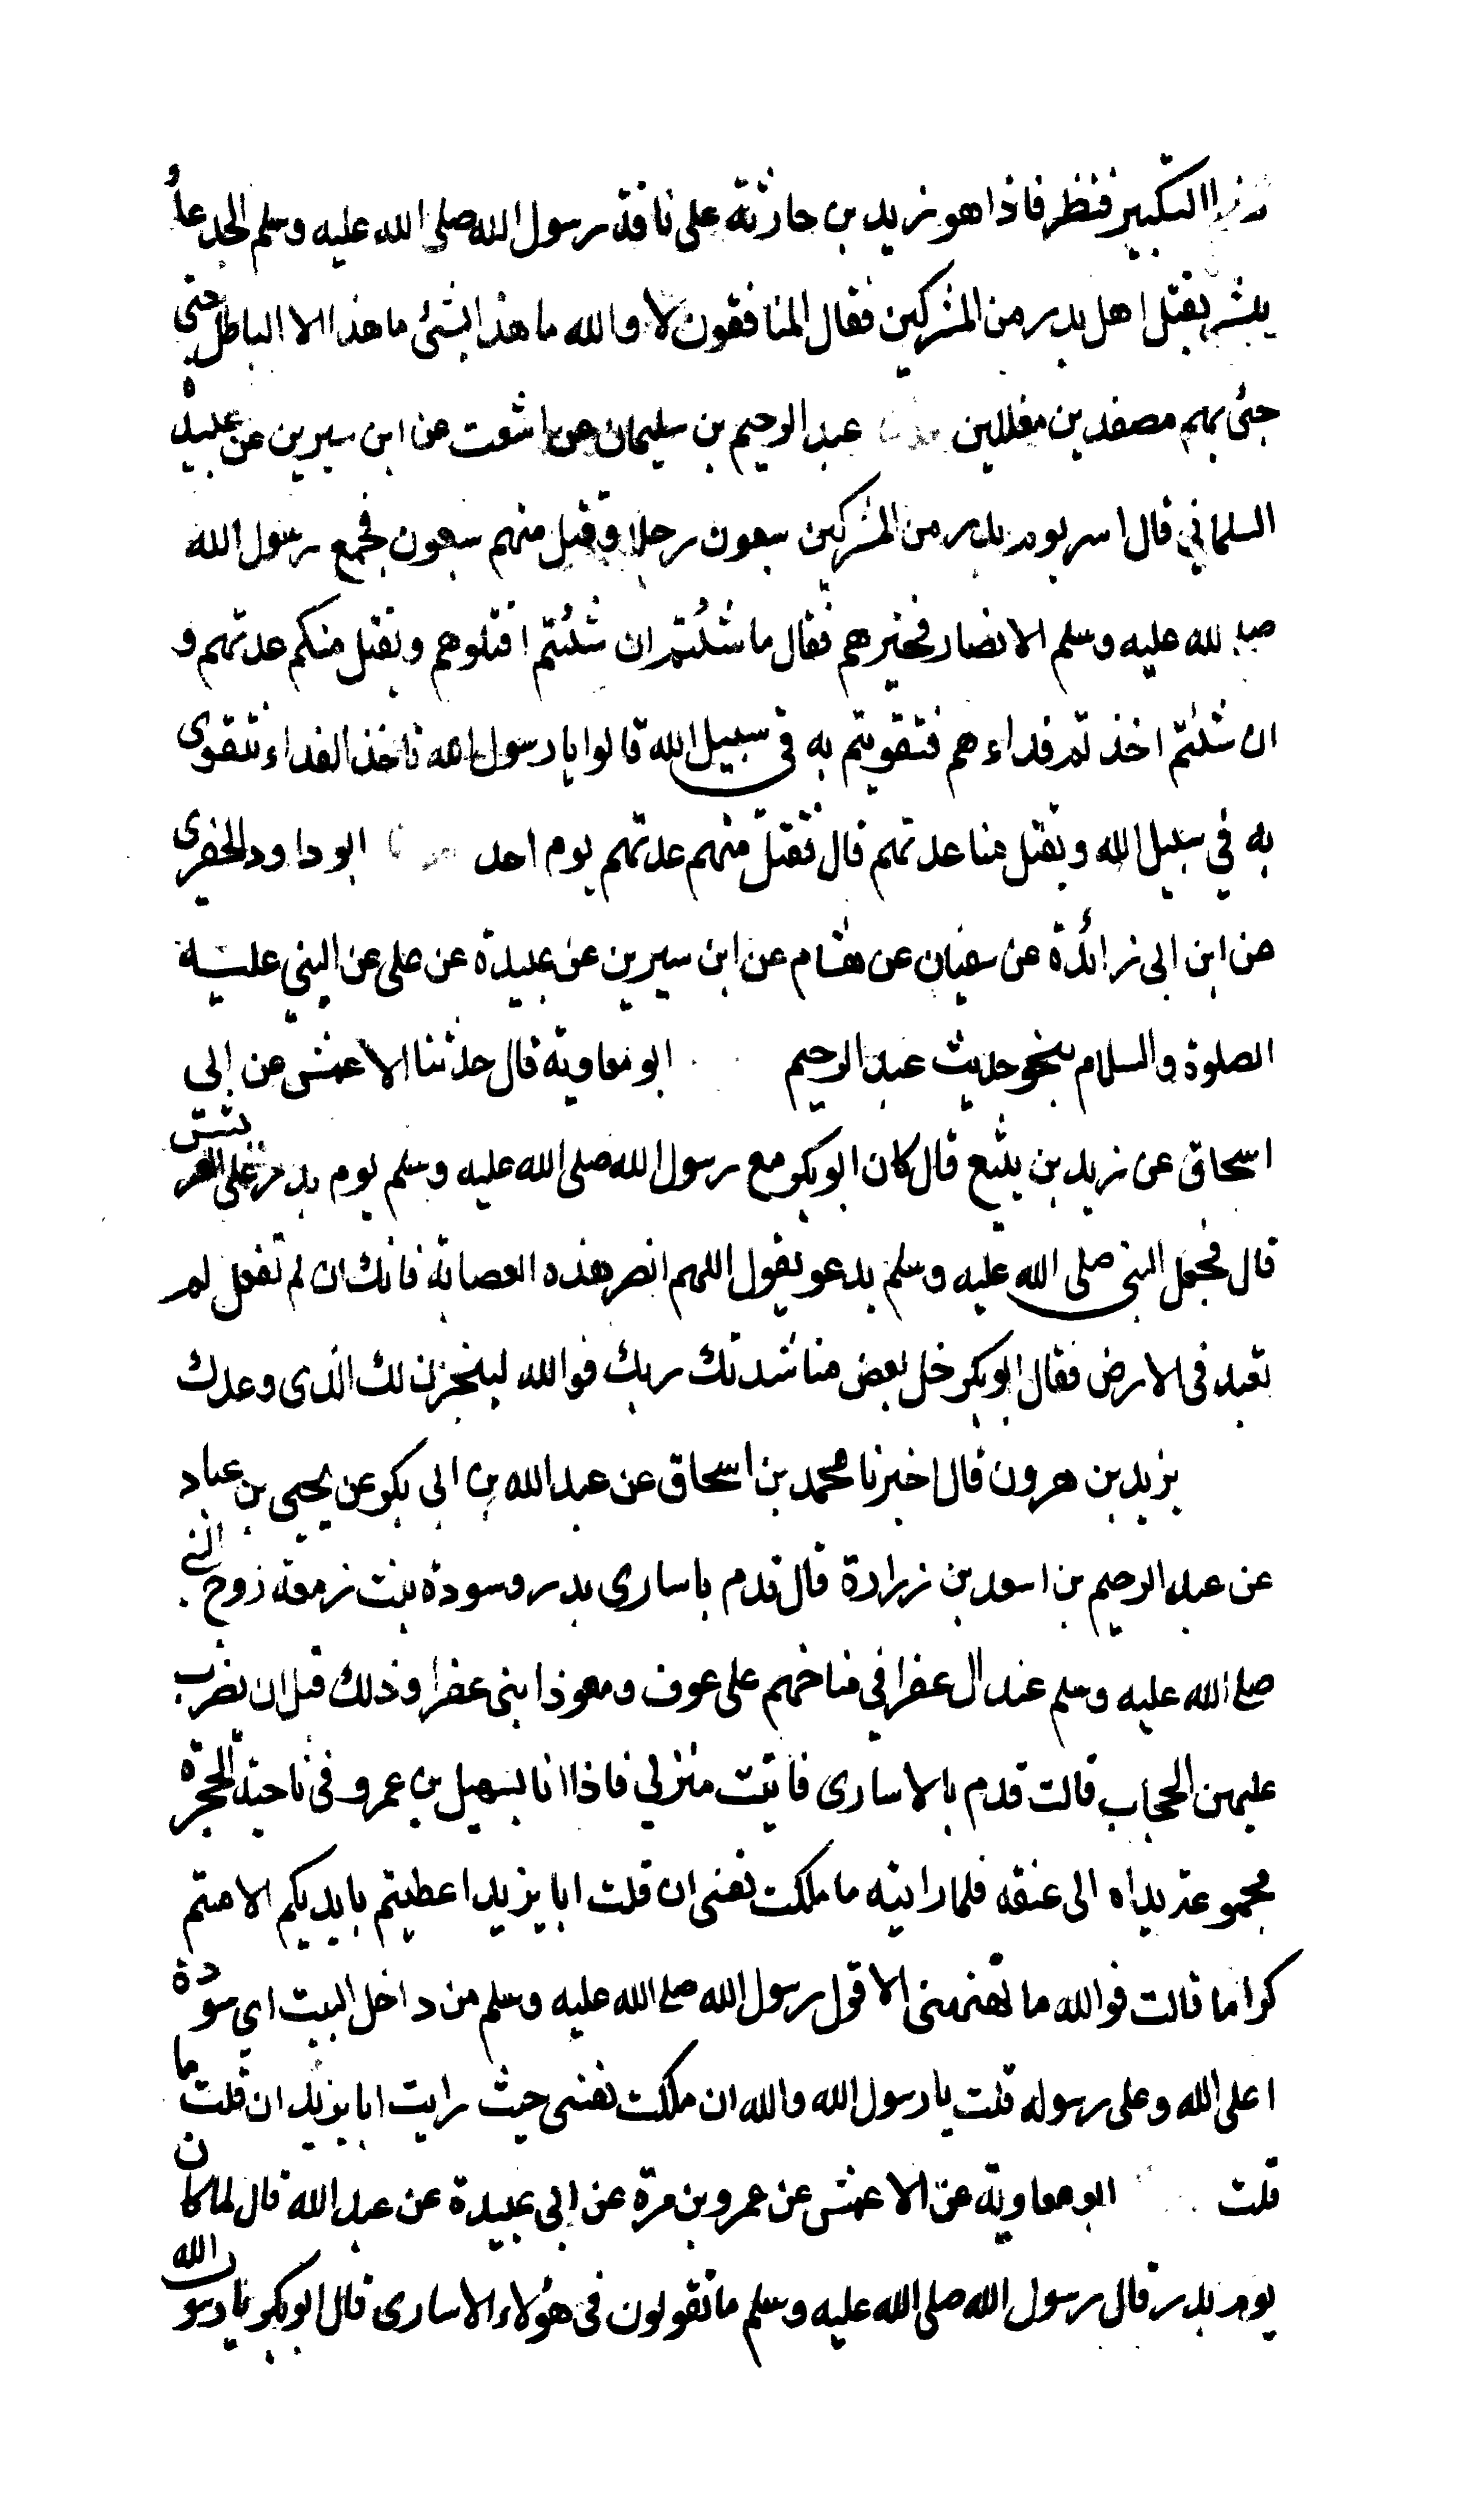 التكبير فنظر فاذا هو زيد بن حارثة على ناقة رسول الله صلى الله عليه وسلم الجدعاً
يبشر بقتل اهل بدر من المشركين فقال المنافقون لا والله ما هذا بشئ ما هذا الا الباطل حتى
جئ بهم مصفدين مغللين حدثنا عبد الرحيم بن سليمان عن اشعث عن ابن سيرين عن عبيدة
السلماني قال اسر يوم بدر من المشركين سبعون رجلا وقتل منهم سبعون فجمع رسول الله
صلى الله عليه وسلم الانصار فخيرهم فقال ما شئتم ان شئتم اقتلوهم ويقتل منكم عدتهم و
ان شئتم اخذتم فداءهم فتقويتم به فى سبيل الله قالوا يا رسول الله ناخذ الفداء نتقوى
به في سبيل الله ويقتل منا عدتهم قال فقتل منهم عدتهم يوم احد حدثنا ابو داود الحفرى
عن ابن ابى زائدة عن سفيان عن هشام عن ابن سيرين عن عبيدة عن على عن النبي عليه
الصلوة والسلام بنحو حديث عبد الرحيم ابو معاوية قال حدثنا الاعمش عن ابي
اسحاق عن زيد بن يثيع قال كان ابو بكر مع رسول الله صلى الله عليه وسلم يوم بدر على العريش
قال فجعل النبي صلى الله عليه وسلم يدعو يقول اللهم انصر هذه العصابة فانك ان لم تفعل لم
تعبد فى الارض فقال ابو بكر خل بعض مناشدتك ربك فوالله لينجزن لك الذى وعدك
يزيد بن هرون قال اخبرنا محمد بن اسحاق عن عبد الله بن ابى بكر عن يحيى بن عباد
عن عبد الرحيم بن اسعد بن زرارة قال قدم باسارى بدر وسودة بنت زمعة زوج النبي
صلى الله عليه وسلم عند ال عفرا في مناخهم على عوف ومعوذ ابنى عفرا وذلك قبل ان يضرب
عليهن الحجاب قالت قدم بالاسارى فاتيت منزلي فاذا انا بسهيل بن عمرو فى ناحية الحجرة
مجموعة يداه الى عنقه فلما رايته ما ملكت نفسى ان قلت ابا يزيد اعطيتم بايديكم الا متم
كراما قالت فوالله ما نبهني الا قول رسول الله صلى الله عليه وسلم من داخل البيت اي سودة
اعلى الله وعلى رسوله قلت يا رسول الله والله ان ملكت نفسى حيث رايت ابا يزيد ان قلت ما
قلت ابو معاوية عن الاعمش عن عمرو بن مرة عن ابي عبيدة عن عبد الله قال لما كان
يوم بدر قال رسول الله صلى الله عليه وسلم ما تقولون فى هؤلاء الاسارى قال ابو بكر يا رسول الله